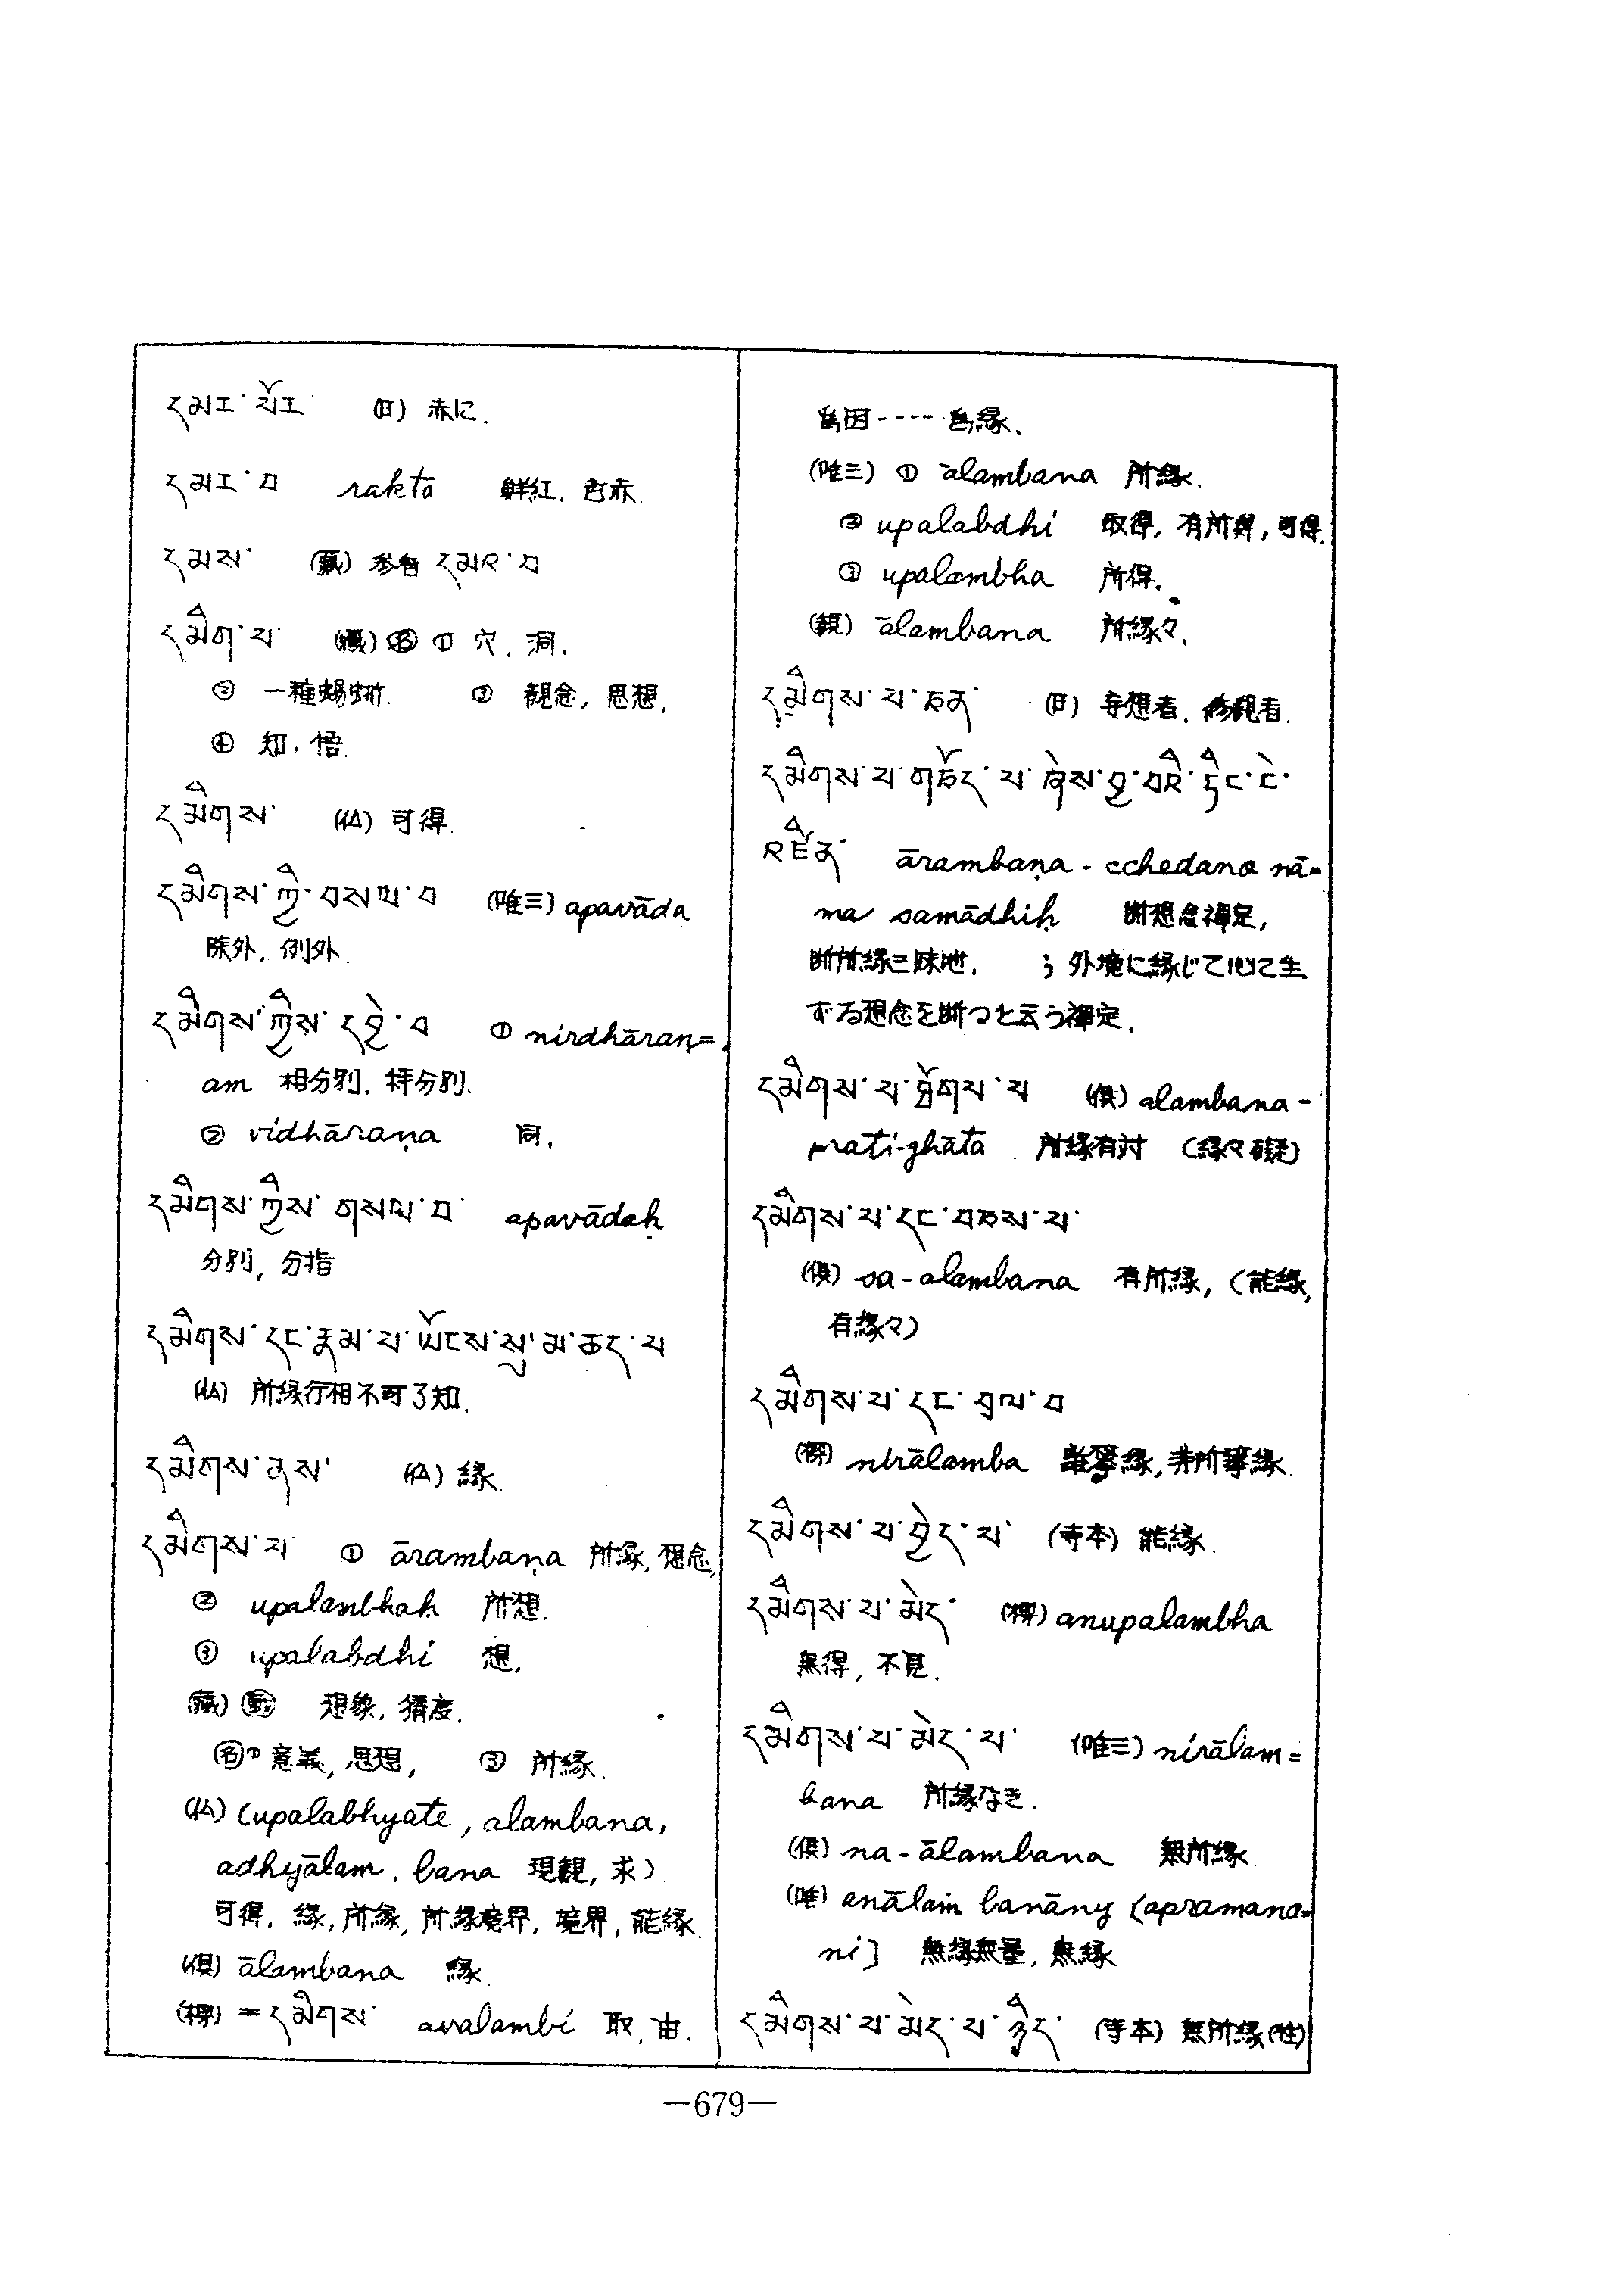 དམར་པོར (日) 赤に.
དམར་བ rakta 鮮紅, 色赤.
དམས་ (蔵) 参看 དམའ་བ
དམིག་པ་ (蔵) 名 ① 穴, 洞,
② 一種蜴蜥. ③ 観念, 思想,
④ 知, 悟.
དམིགས་ (仏) 可得.
དམིགས་ཀྱི་བསལ་བ (唯三) apavāda
除外, 例外.
དམིགས་ཀྱིས་དབྱེ་བ ① nirdhāraṇ=
am 相分別, 秤分別.
② vidhāraṇa 同,
དམིགས་ཀྱིས་གསལ་བ་ apavādaḥ
分別, 分指
དམིགས་དང་རྣམ་པ་ཡོངས་སུ་མ་ཆད་པ
(仏) 所縁行相不可了知.
དམིགས་ནས་ (仏) 縁.
དམིགས་པ ① ārambaṇa 所縁, 想念,
② upalambhaḥ 所想.
③ upalabdhi 想,
(蔵) 動 想象, 猜度.
名① 意義, 思想, ② 所縁.
(仏) (upalabhyate, alambana,
adhyālam. bana 現観, 求)
可得, 縁, 所縁, 所縁境界, 境界, 能縁.
(倶) ālambana 縁.
(梶) =དམིགས་ avalambi 取, 由.
為因---- 為縁、
(唯三) ① ālambana 所縁.
② upalabdhi 取得, 有所得, 可得.
③ upalambha 所得.
(観) ālambana 所縁々、
དམིགས་པ་ཅན་ (日) 妄想者, 修観者.
དམིགས་པ་གཅོད་པ་ཞེས་བྱ་བའི་ཏིང་ངེ་
འཛིན་ ārambaṇa-cchedana nā=
ma samādhiḥ 断想念禅定,
断所縁三昧地, ; 外境に縁じて心に生
ずる想念を断つと云う禅定.
དམིགས་པ་ཐོགས་པ (倶) alambana-
prati-ghāta 所縁有対 (縁々礙)
དམིགས་པ་དང་བཅས་པ་
(倶) sa-alambana 有所縁, (能縁,
有縁々)
དམིགས་པ་དང་བྲལ་བ
nirālamba 攀縁, 非所攀縁.
དམིགས་པ་བྱེད་པ་ (寺本) 能縁.
དམིགས་པ་མེད་ anupalambha
無得, 不見.
དམིགས་པ་མེད་པ་ (唯三) nirālam=
bana 所縁なき.
(倶) na-ālambana 無所縁.
(唯) anālaṁ banāny (apramana=
ni] 無縁無量, 無縁
དམིགས་པ་མེད་པ་ཉིད་ (寺本) 無所縁(性)
—679—